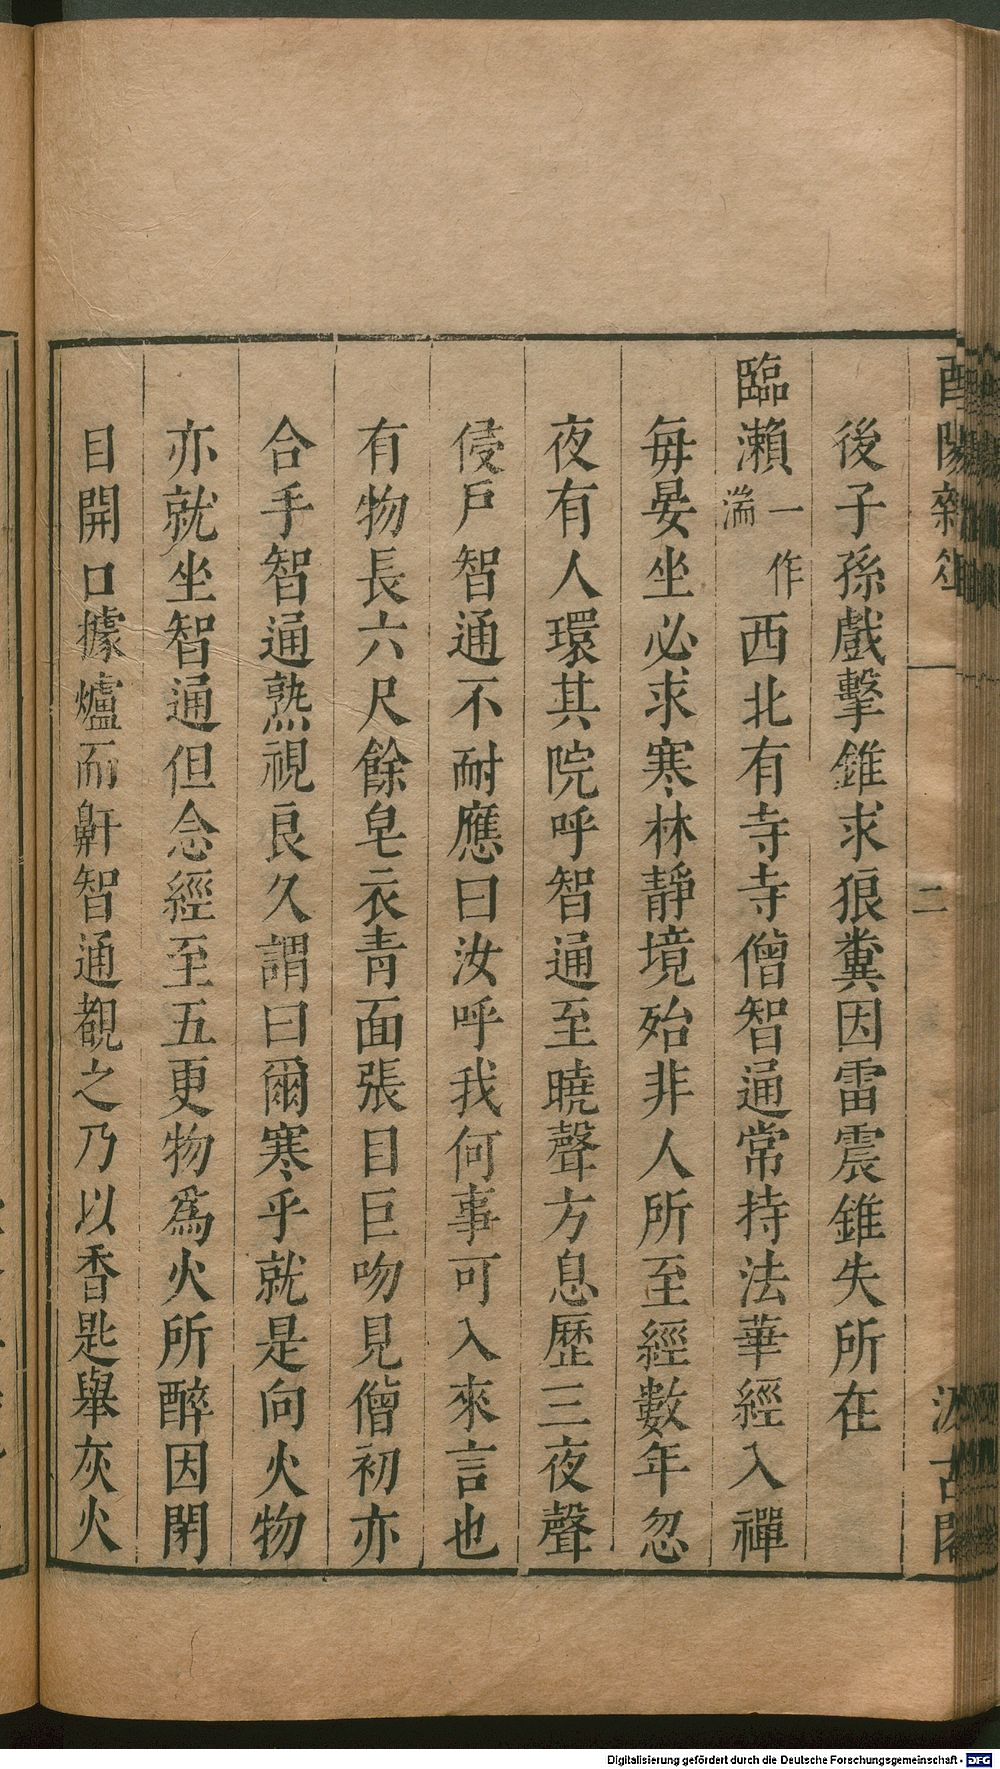 酉陽雜俎 二 汲古閣
後子孫戲擊錐求狼糞因雷震錐失所在
臨瀨一作湍西北有寺寺僧智通常持法華經入禪
每晏坐必求寒林靜境殆非人所至經數年忽
夜有人環其院呼智通至曉聲方息歷三夜聲
侵戶智通不耐應曰汝呼我何事可入來言也
有物長六尺餘皂衣靑面張目巨吻見僧初亦
合手智通熟視良久謂曰爾寒乎就是向火物
亦就坐智通但念經至五更物爲火所醉因閉
目開口據爐而鼾智通覩之乃以香匙舉灰火
Digitalisierung gefördert durch die Deutsche Forschungsgemeinschaft - DFG